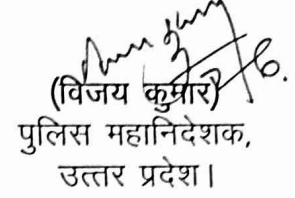 (विजय कुमार)
पुलिस महानिदेशक,
उत्तर प्रदेश।